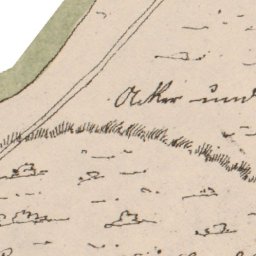 Acker und